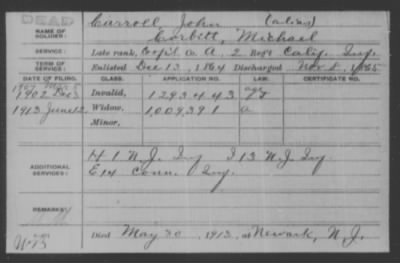 DEAD
NAME OF SOLDIER: Carroll, John (alias)
Corbett, Michael
SERVICE: Late rank, Corp'l Co. A, 2 Reg't Calif. Inf.
TERM OF SERVICE: Enlisted Dec 13, 1864 Discharged Nov 8, 1865
DATE OF FILING. CLASS. APPLICATION NO. LAW. CERTIFICATE NO.
1907
1902 Dec 3 Invalid, 1293443
1913 June 12 Widow, 1,009,391 a
Minor,
ADDITIONAL SERVICES: H 1 N.J. Inf I 13 N.J. Inf.
E 14 Conn. Inf.
REMARKS:
Died May 30, 1913, at Newark, N.J.